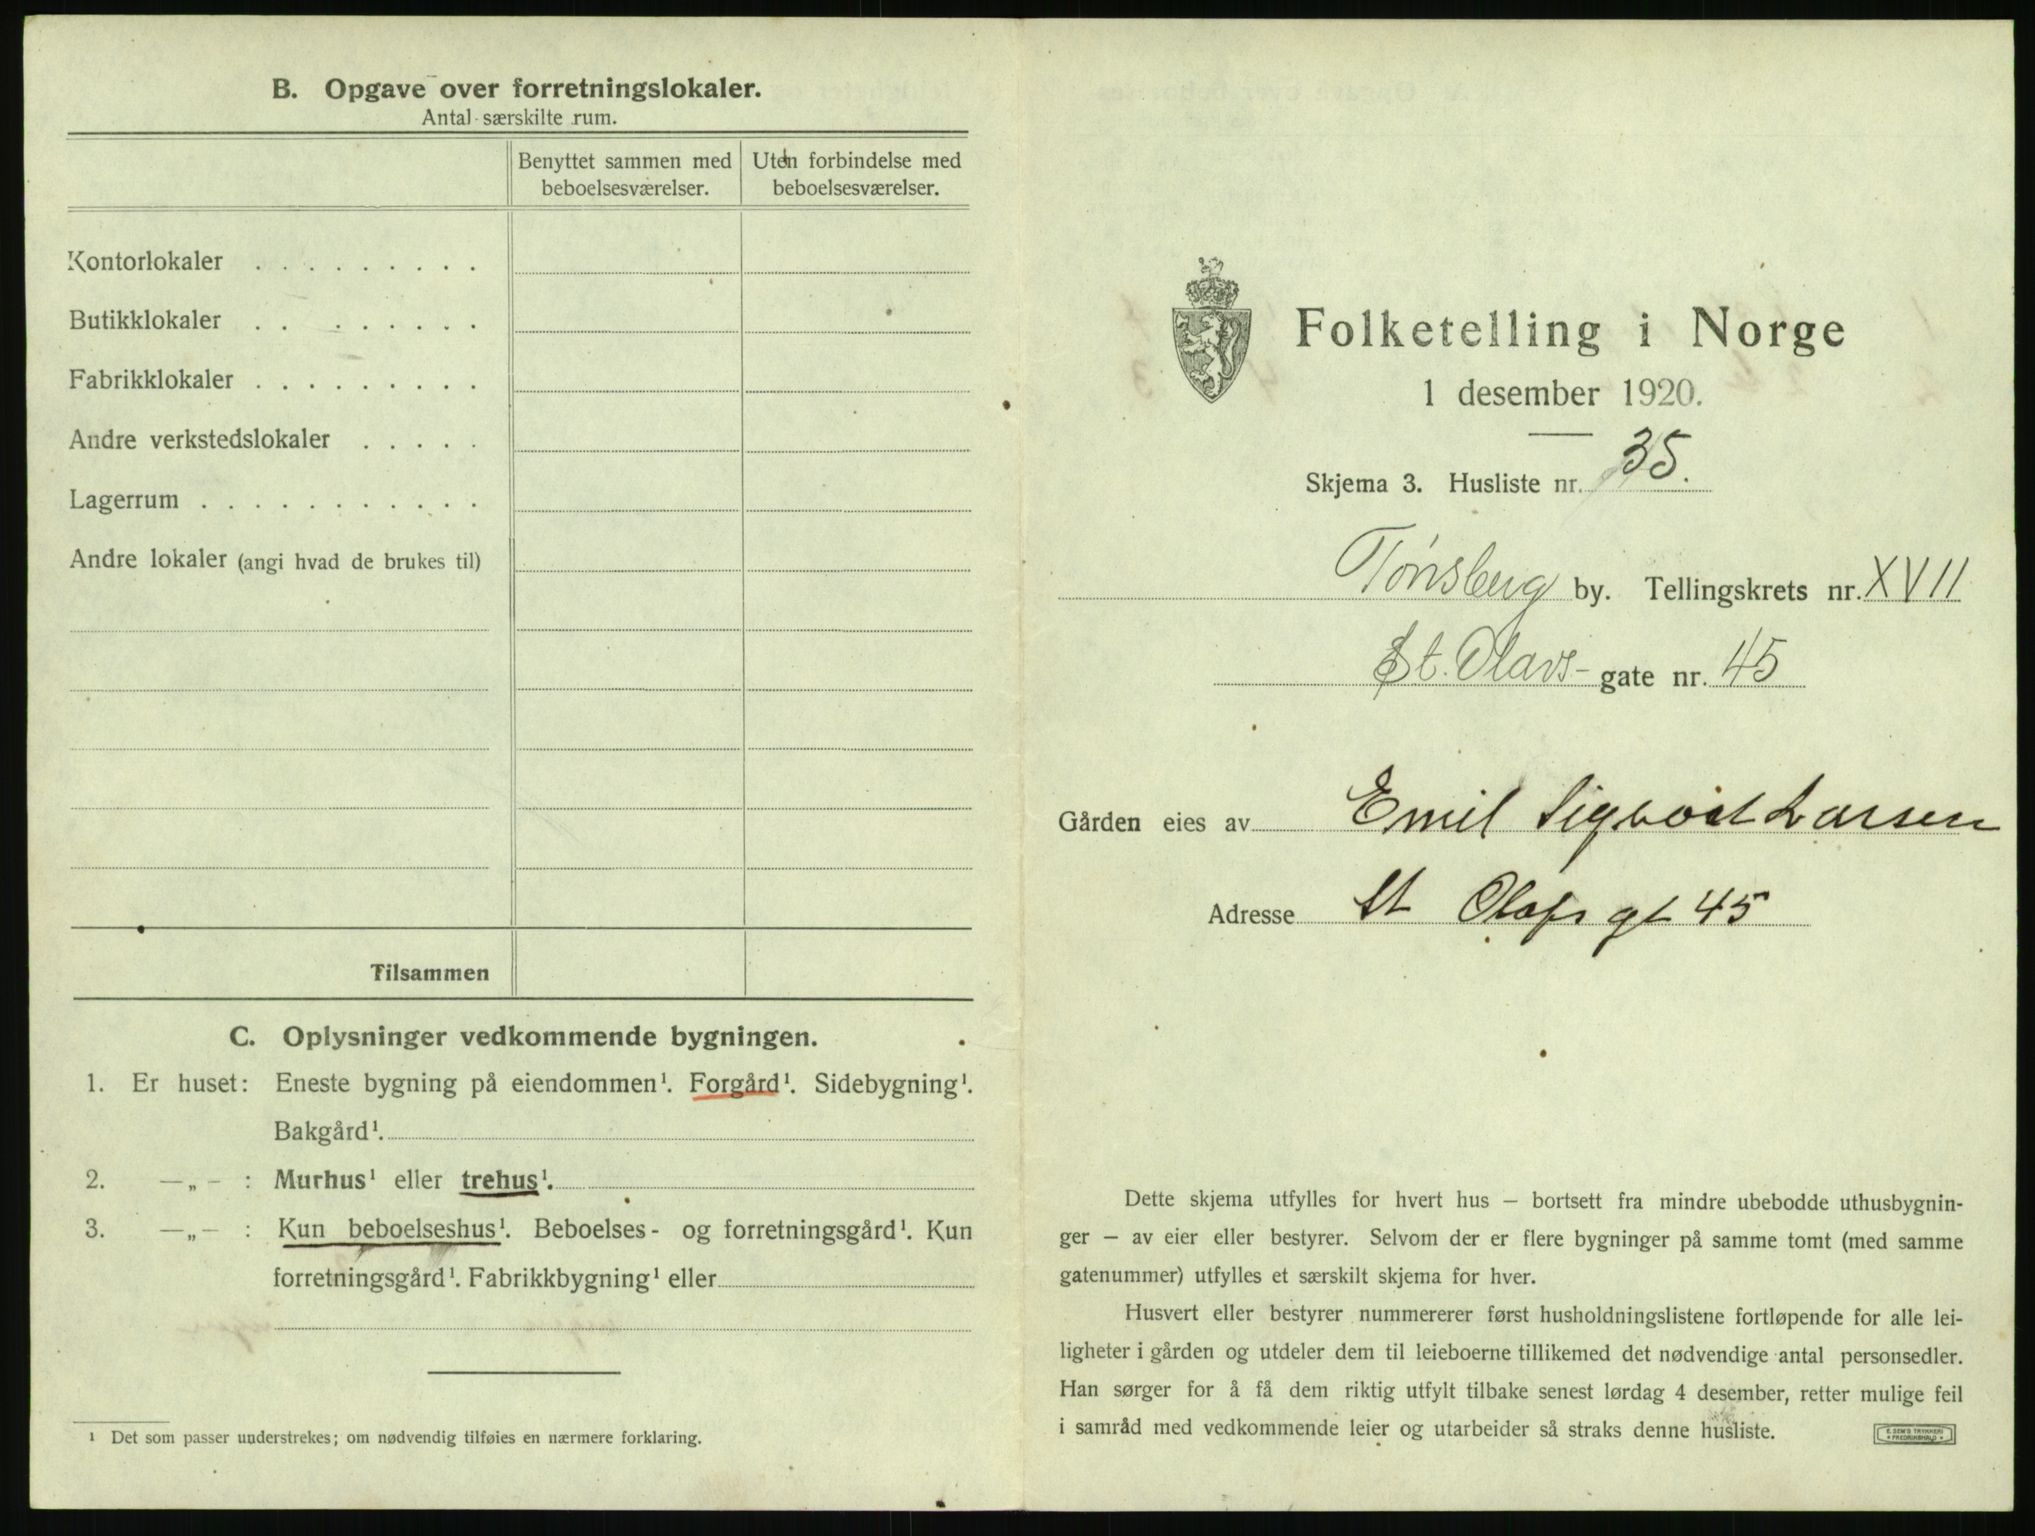 B. Opgave over forretningslokaler.
Antal særskilte rum.
Benyttet sammen med beboelsesværelser.
Uten forbindelse med beboelsesværelser.
Kontorlokaler . . . . . . . . .
Butikklokaler . . . . . . . .
Fabrikklokaler . . . . . . . . .
Andre verkstedslokaler . . . . .
Lagerrum . . . . . . . . . . .
Andre lokaler (angi hvad de brukes til)
Tilsammen
C. Oplysninger vedkommende bygningen.
1. Er huset: Eneste bygning på eiendommen¹. Forgård¹. Sidebygning¹.
Bakgård¹.
2. —„— : Murhus¹ eller trehus¹.
3. —„— : Kun beboelseshus¹. Beboelses- og forretningsgård¹. Kun
forretningsgård¹. Fabrikkbygning¹ eller
¹ Det som passer understrekes; om nødvendig tilføies en nærmere forklaring.
Folketelling i Norge
1 desember 1920.
Skjema 3. Husliste nr. 35.
Tønsberg by. Tellingskrets nr. XVII
St. Olavs- gate nr. 45
Gården eies av Emil Sigvart Larsen
Adresse St Olafs gt 45
Dette skjema utfylles for hvert hus – bortsett fra mindre ubebodde uthusbygnin-
ger – av eier eller bestyrer. Selvom der er flere bygninger på samme tomt (med samme
gatenummer) utfylles et særskilt skjema for hver.
Husvert eller bestyrer nummererer først husholdningslistene fortløpende for alle lei-
ligheter i gården og utdeler dem til leieboerne tillikemed det nødvendige antal personsedler.
Han sørger for å få dem riktig utfylt tilbake senest lørdag 4 desember, retter mulige feil
i samråd med vedkommende leier og utarbeider så straks denne husliste.
E. SEM'S TRYKKERI
FREDRIKSHALD